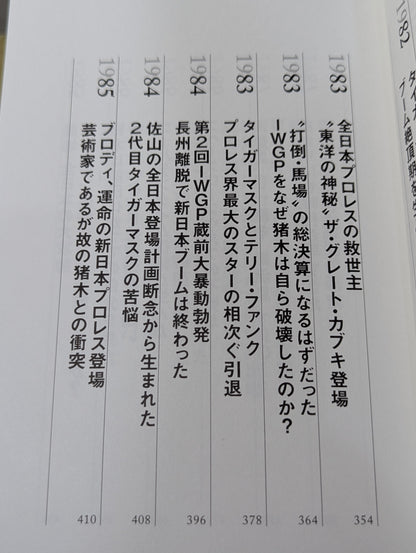 1982
1983
全日本プロレスの救世主
“東洋の神秘”ザ・グレート・カブキ登場
354
1983
“打倒・馬場”の総決算になるはずだった
IWGPをなぜ猪木は自ら破壊したのか?
364
1983
タイガーマスクとテリー・ファンク
プロレス界最大のスターの相次ぐ引退
378
1984
第2回IWGP蔵前大暴動勃発
長州離脱で新日本ブームは終わった
396
1984
佐山の全日本登場計画断念から生まれた
2代目タイガーマスクの苦悩
408
1985
ブロディ、運命の新日本プロレス登場
芸術家であるが故の猪木との衝突
410